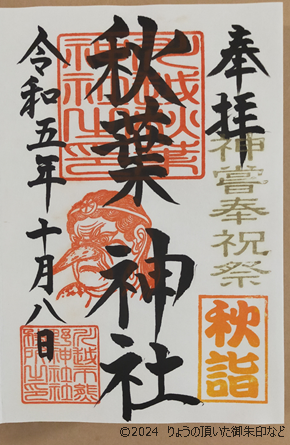 奉拝
神嘗奉祝祭
秋詣
秋葉神社
川越秋葉
神社之印
令和五年十月八日
©2024 りょうの頂いた御朱印など